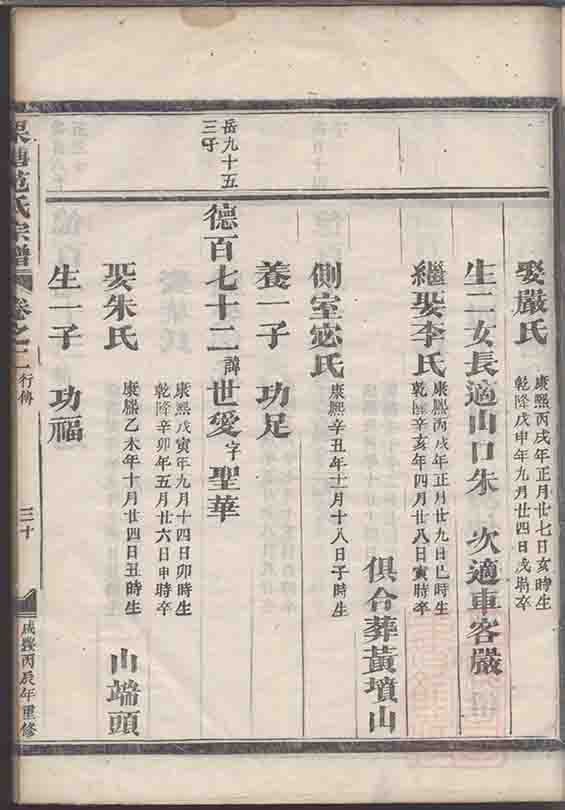 娶嚴氏
康熙丙戌年正月廿七日亥時生
乾隆戊申年九月廿四日戌時卒
生二女長適山口朱 次適車客嚴
繼娶李氏
康熙丙戌年正月廿九日巳時生
乾隆辛亥年四月廿八日寅時卒
俱合葬黃墳山
側室宓氏
康熙辛丑年十一月十八日子時生
養一子 功足
岳九十五
三子
德百七十二諱世愛字聖華
康熙戊寅年九月十四日卯時生
乾隆辛卯年五月廿六日申時卒
娶朱氏
康熙乙未年十月廿四日丑時生
山端頭
生一子 功福
范氏宗譜
卷之二
行傳
三十
咸豐丙辰年重修